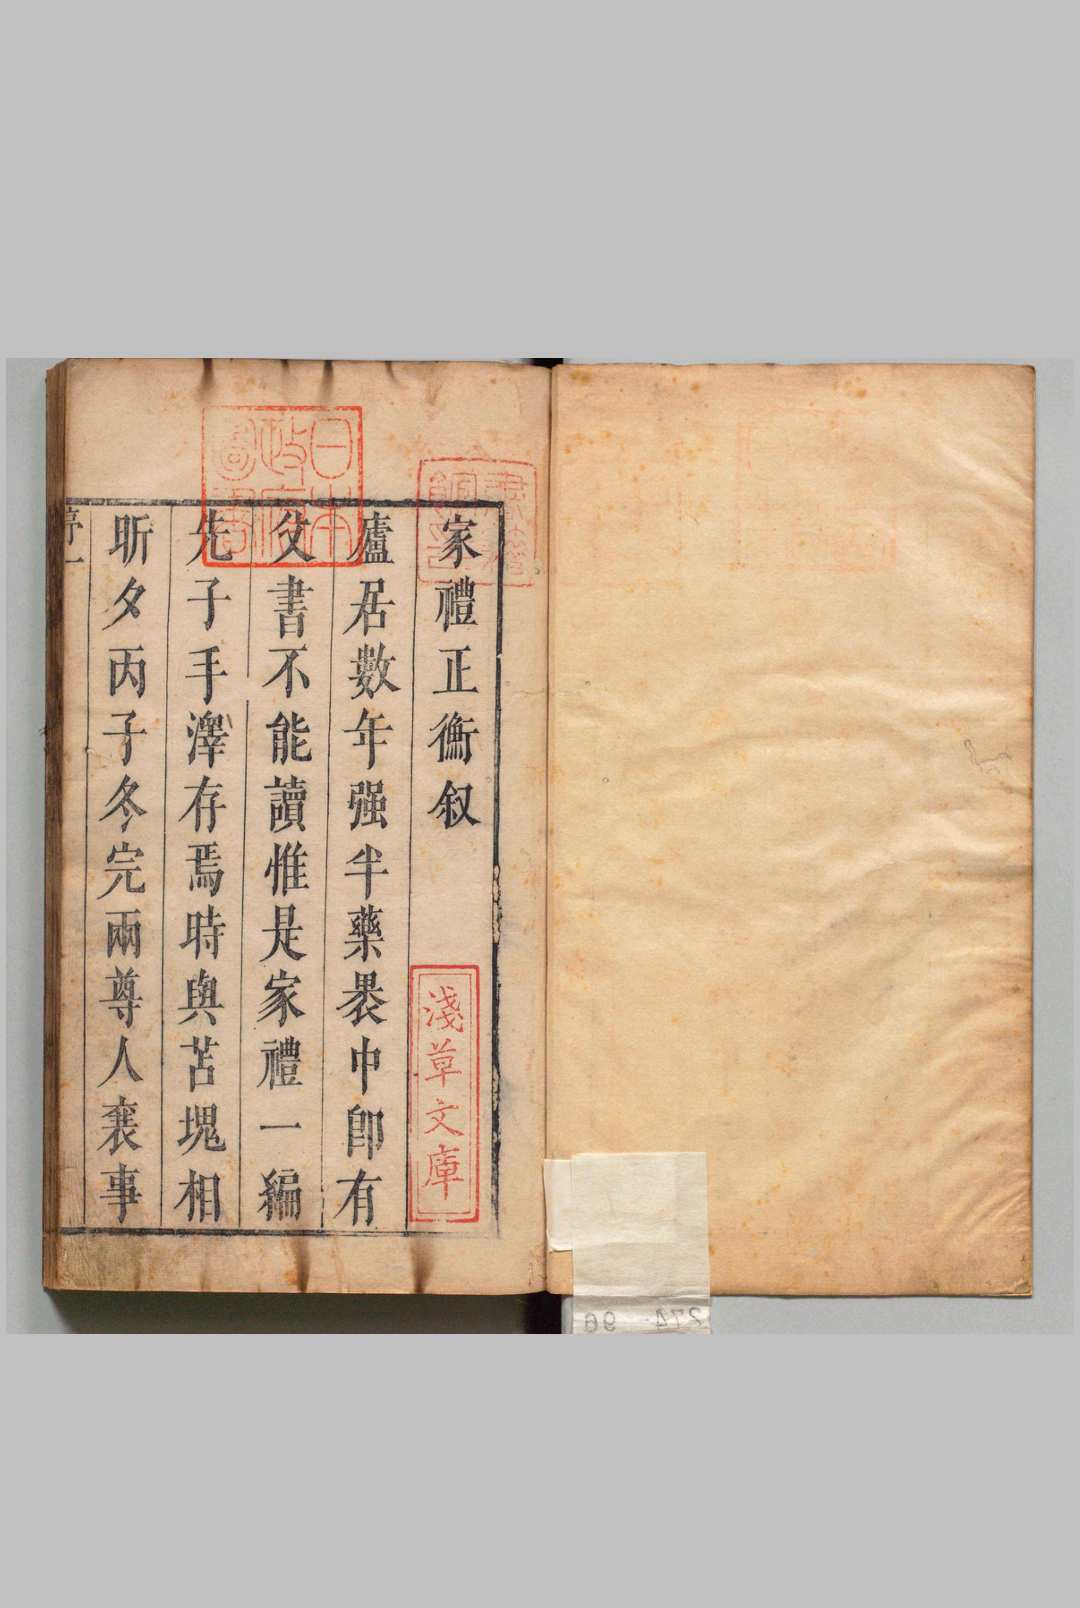 家禮正衡叙
廬居數年强半藥褁中卽有
父書不能讀惟是家禮一編
先子手澤存焉時與苫塊相
昕夕丙子冬完兩尊人襄事
日本
政府
圖書
淺草文庫
274 96